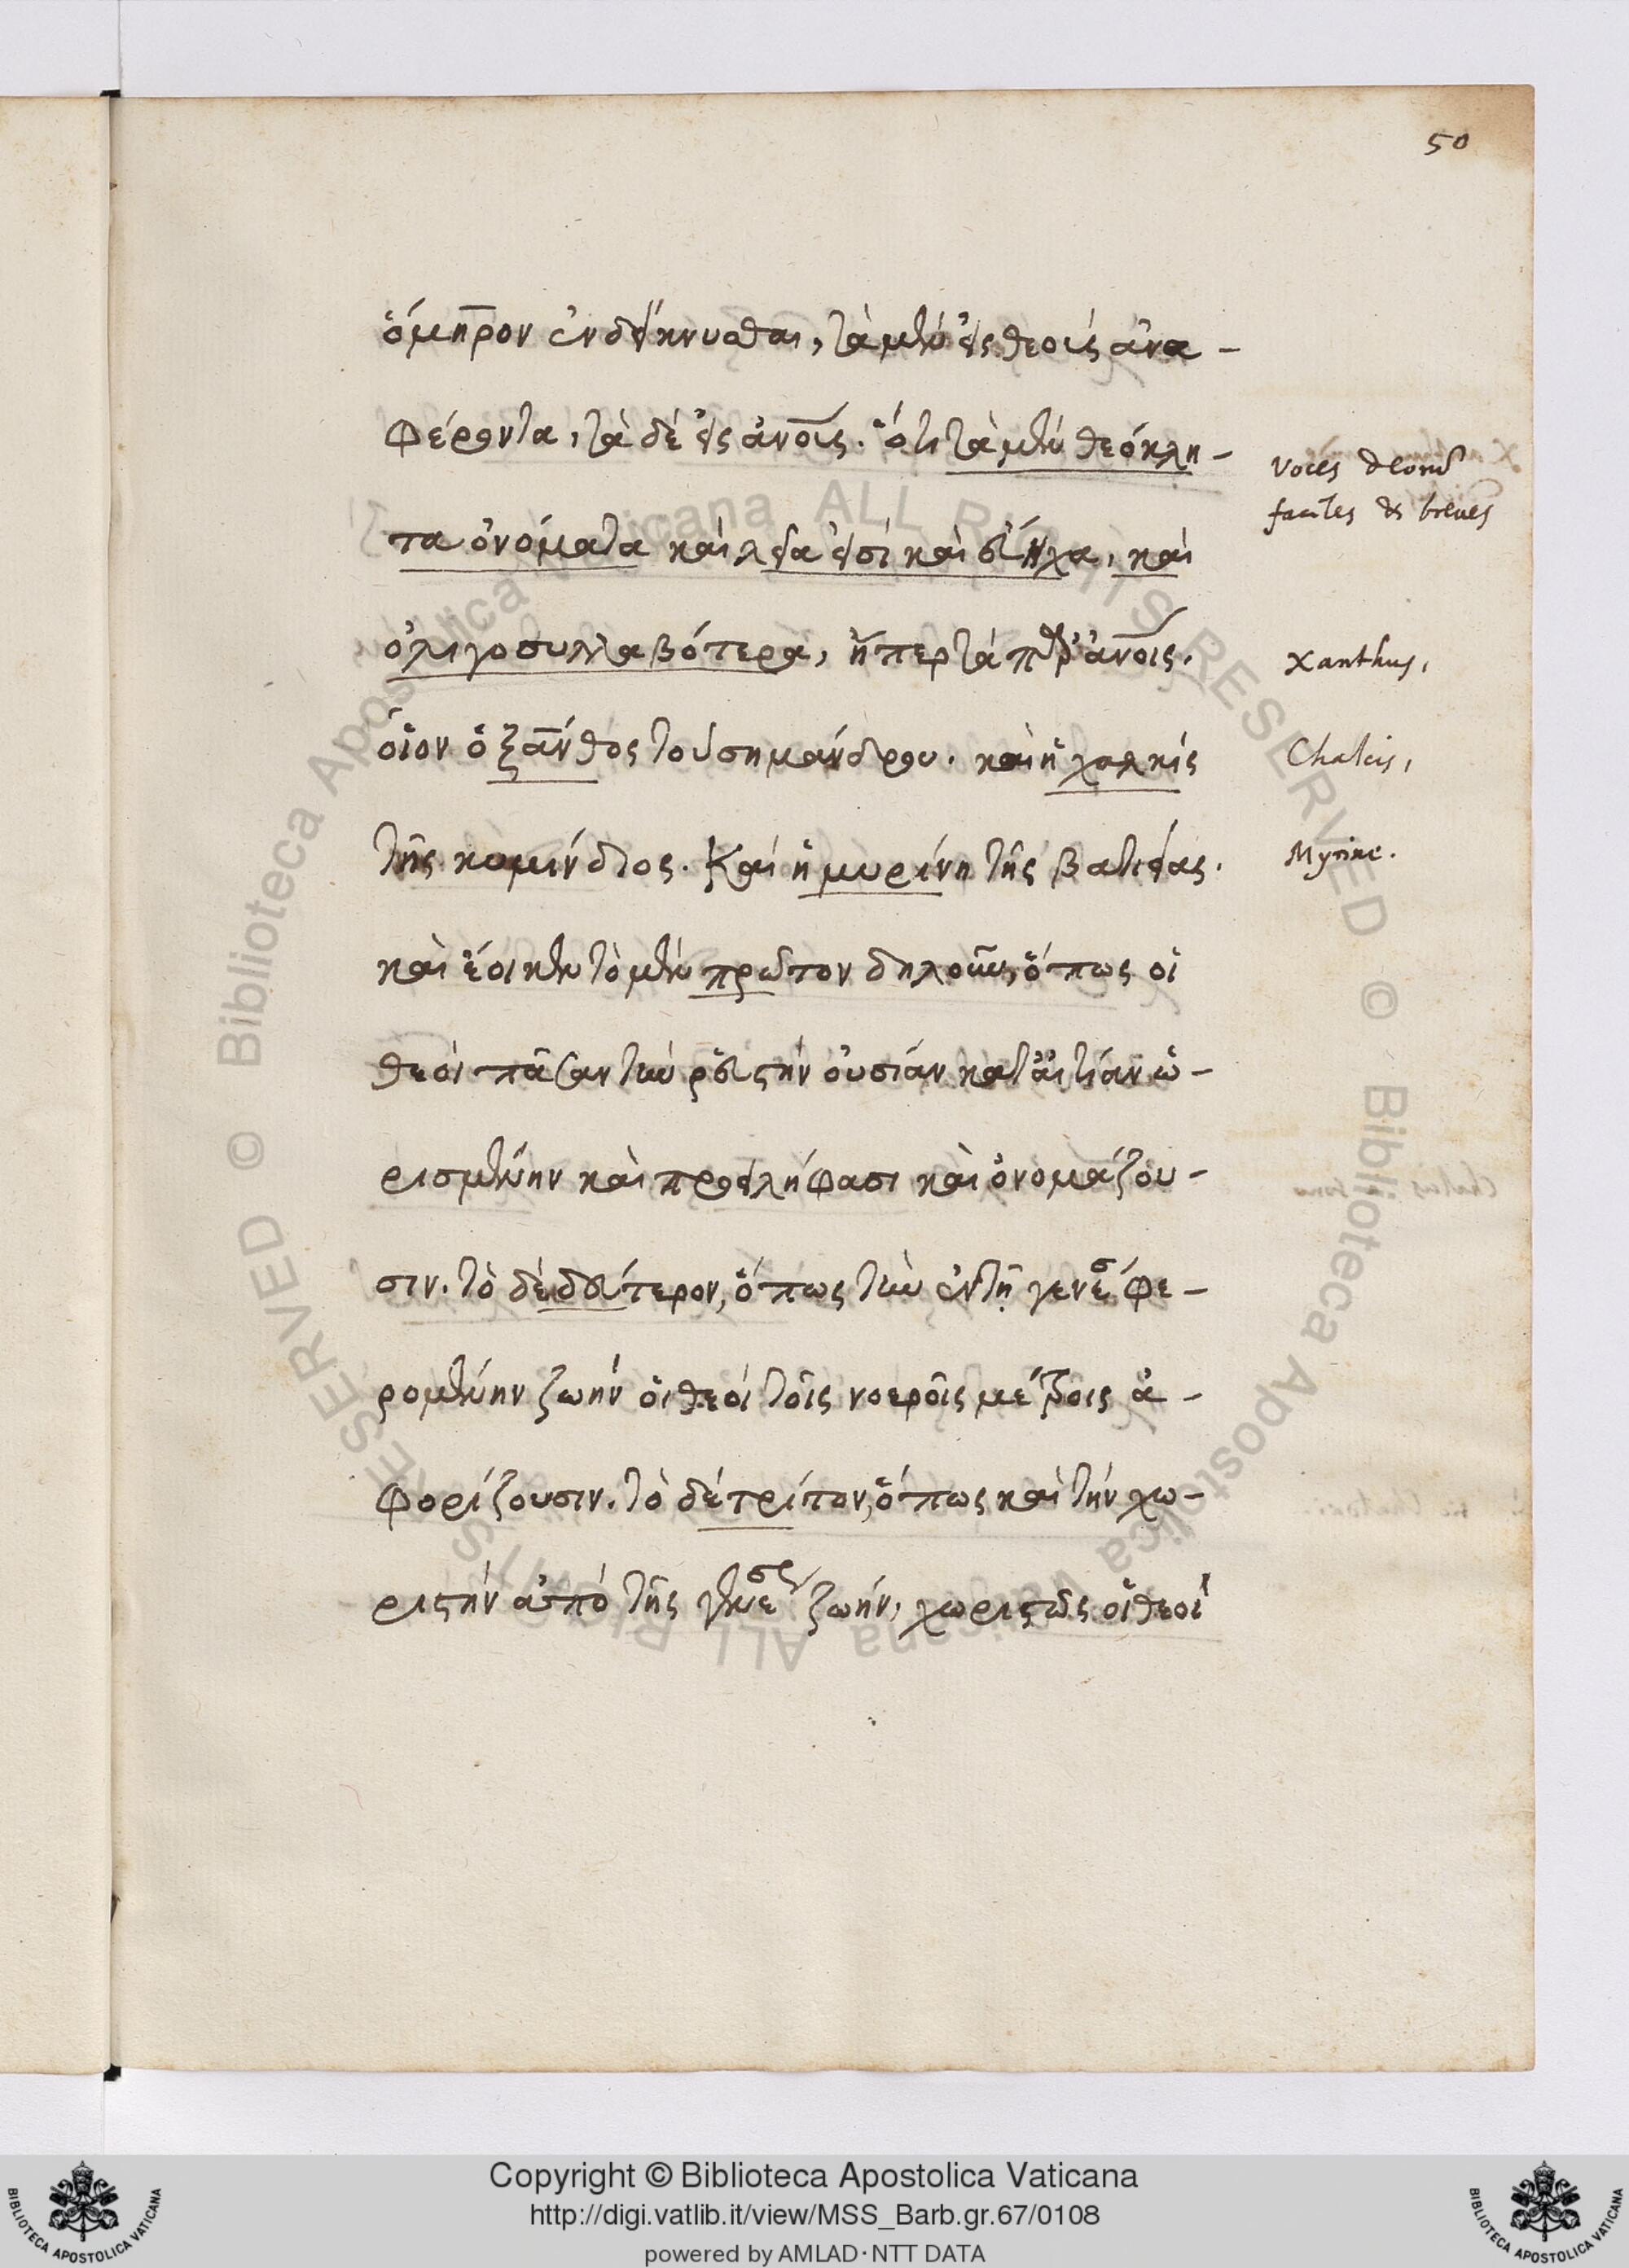 50
ὅμηρον ἐνδείκνυσθαι, τὰ μὲν εἰς θεοὺς ἀνα-
φέροντα, τὰ δὲ εἰς ἀνους. ὅτι τὰ μὲν θεόκλη-
τα ὀνόματα καὶ λεῖα εἰσὶ καὶ εὔηχα, καὶ
ὀλιγοσυλλαβότερα, ἤπερ τὰ παρ' ἀνοις.
οἷον ὁ ξάνθος τοῦ σκημάνδρου. καὶ ἡ χαλκὶς
τῆς κυμίνδιος. Καὶ ἡ μυρίνη τῆς βατιείας.
καὶ ἔοικεν τὸ μὲν πρῶτον δηλοῦν, ὅπως οἱ
θεοὶ πᾶσαν τὴν ῥευστὴν οὐσίαν κατ' αἰτίαν ὡ-
ρισμένην καὶ προειλήφασι καὶ ὀνομάζου-
σιν. τὸ δὲ δεύτερον, ὅπως τὴν ἐν τῇ γενέσ φε-
ρομένην ζωὴν οἱ θεοὶ τοῖς νοεροῖς μέτροις ἀ-
φορίζουσιν. τὸ δὲ τρίτον, ὅπως καὶ τὴν χω-
ριστὴν ἀπὸ τῆς γενεσ ζωήν, χωριστῶς οἱ θεοὶ
Voces deorum
faciles & breues
Xanthus,
Chalcis,
Myrine.
Copyright © Biblioteca Apostolica Vaticana
http://digi.vatlib.it/view/MSS_Barb.gr.67/0108
powered by AMLAD·NTT DATA
BIBLIOTECA APOSTOLICA VATICANA
BIBLIOTECA APOSTOLICA VATICANA
© Biblioteca Apostolica Vaticana ALL RIGHTS RESERVED
© Biblioteca Apostolica Vaticana ALL RIGHTS RESERVED